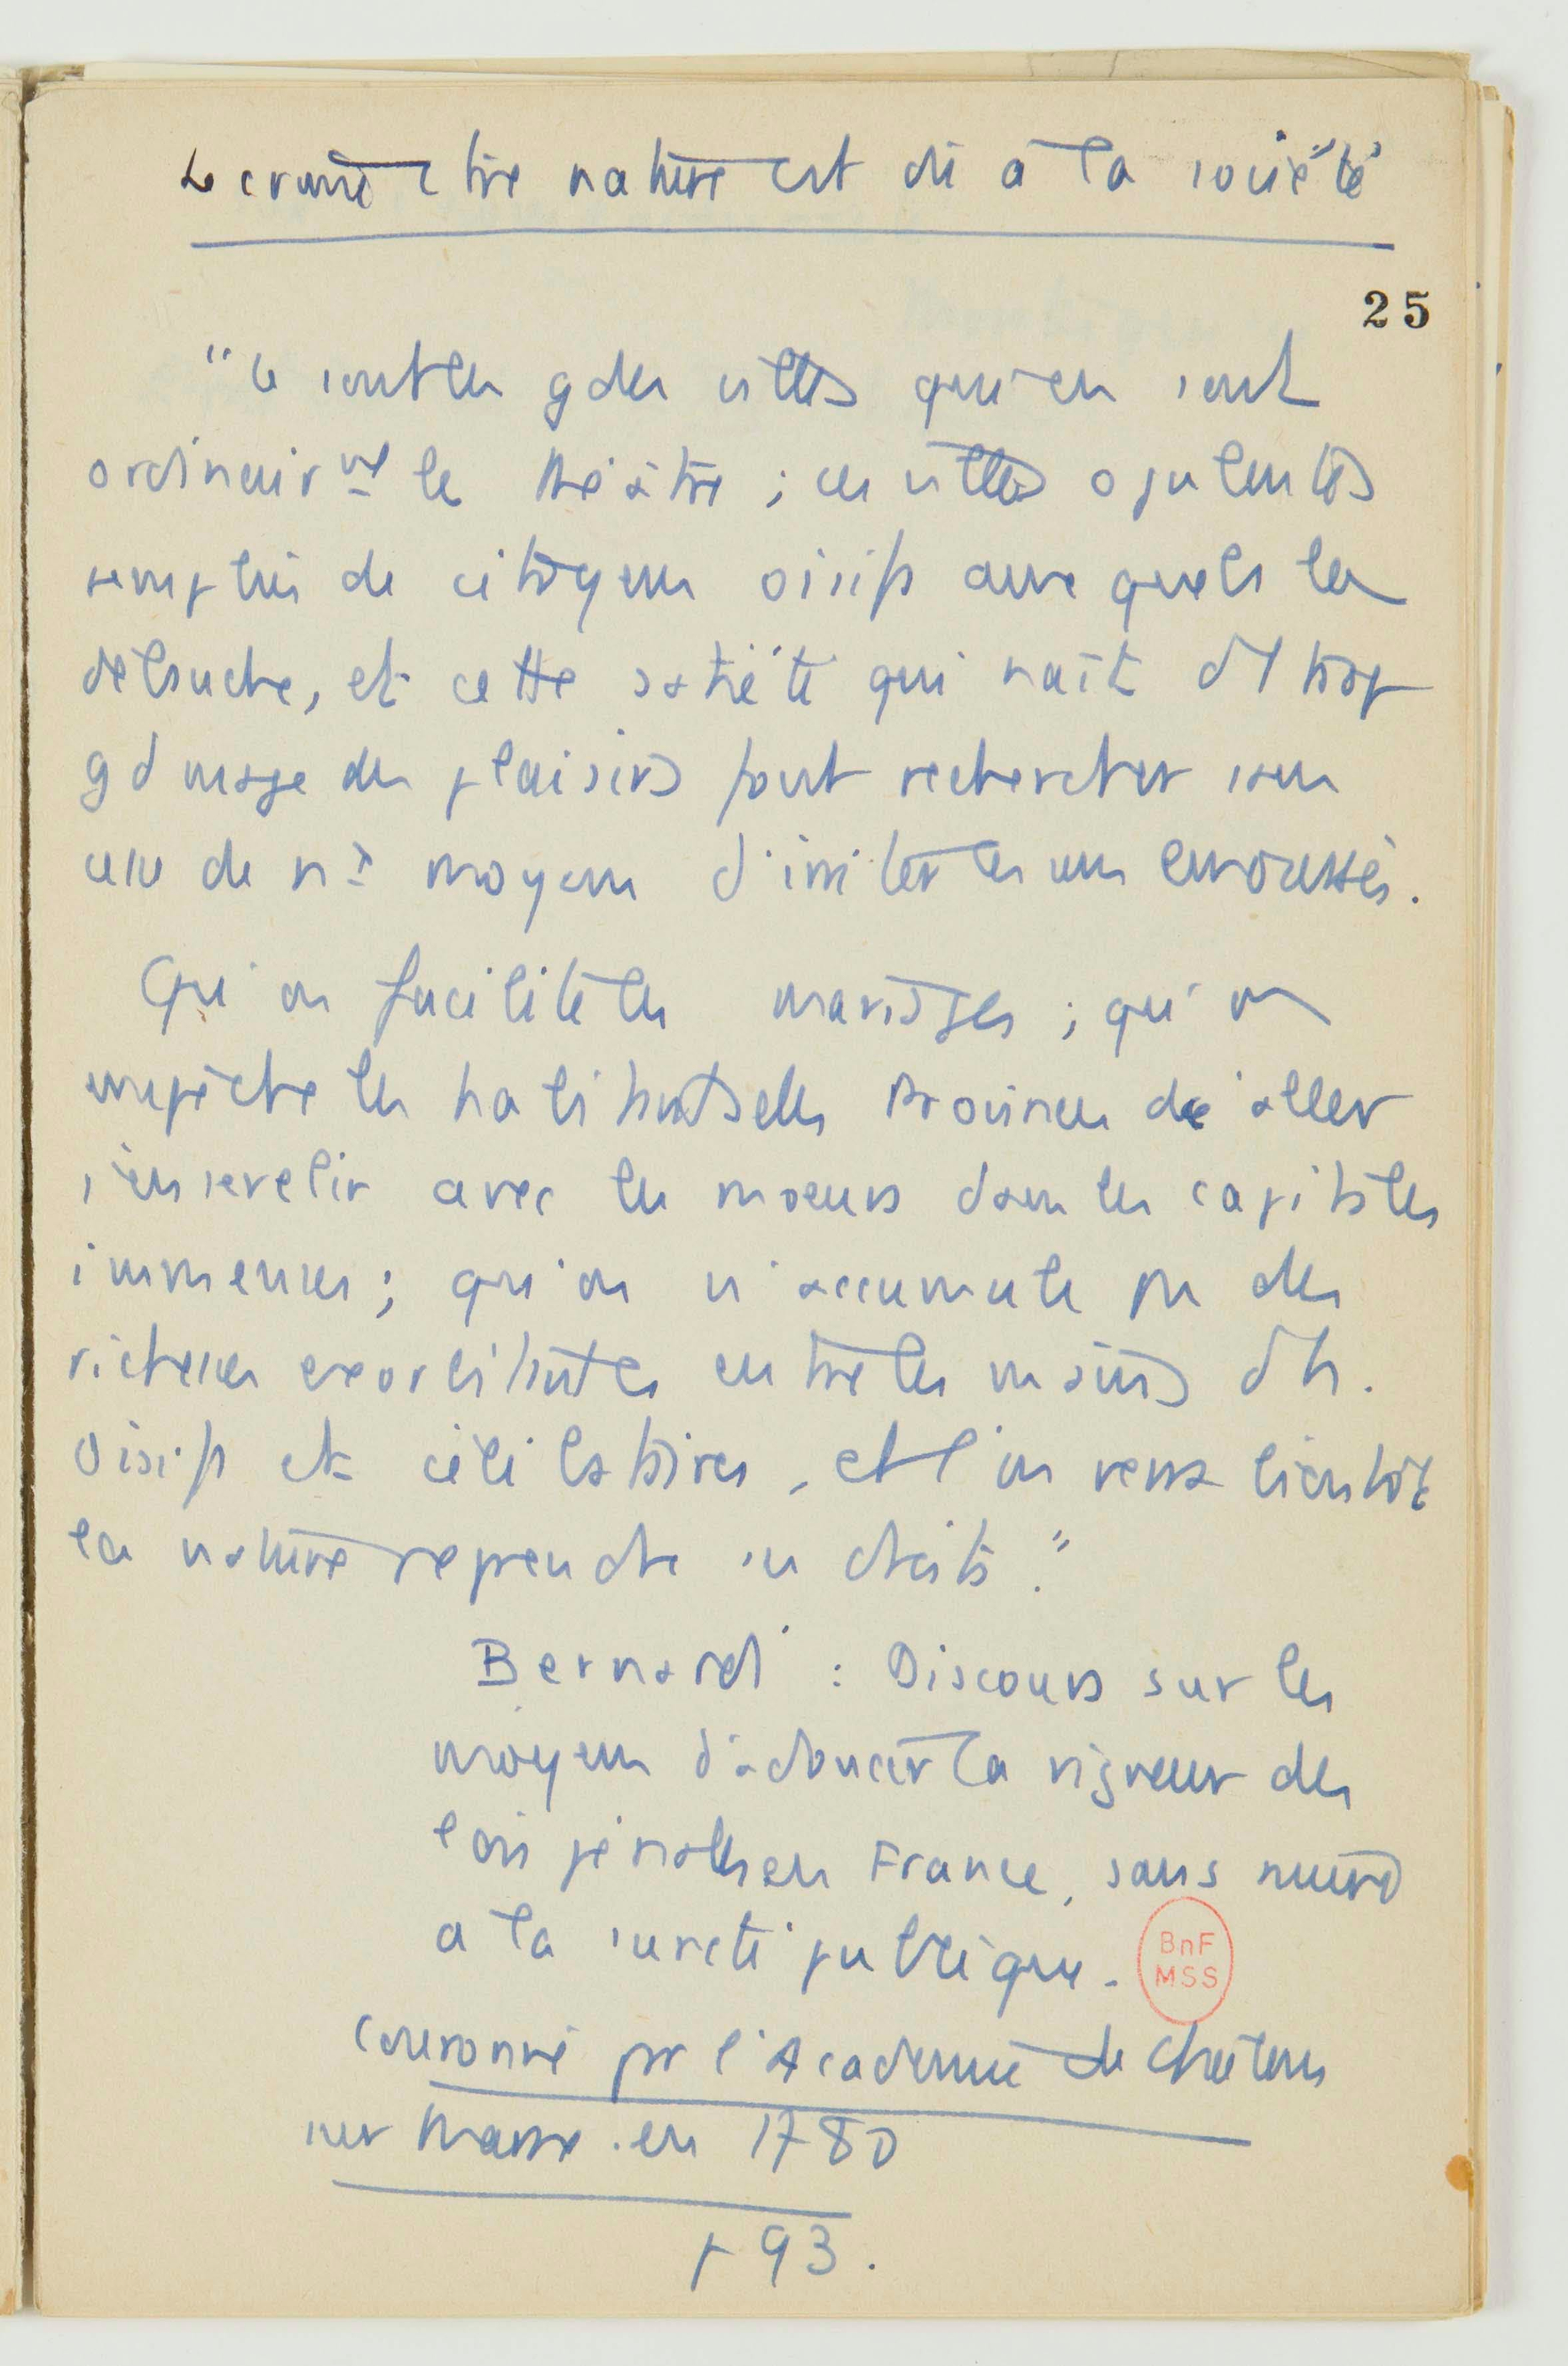 Le crime c/tre nature est dû à la société
25
"Ce sont les gdes villes qui en sont
ordinairmt le théâtre ; ces villes opulentes
remplies de citoyens oisifs auxquels la
débauche, et cette satiété qui naît d'1 trop
gd usage des plaisirs font rechercher sans
cesse de nx moyens d'irriter les sens émoussés.
Qu'on facilite les mariages ; qu'on
empêche les habitants des Provinces de aller
s'ensevelir avec les moeurs dans les capitales
immenses ; qu'on n'accumule pas des
richesses exorbitantes entre les mains d'h.
oisifs et célibataires, et l'on verra bientôt
la nature reprendre ses droits."
Bernardi : Discours sur les
moyens d'adoucir la rigueur des
lois pénales en France, sans nuire
a la sureté publique.
BnF
MSS
Couronné par l'Academie de Chalons
sur Marne en 1780
p 93.